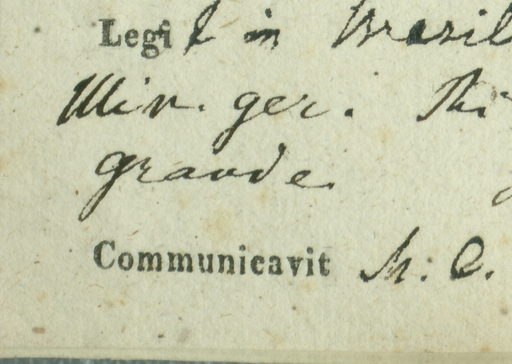 Legit in Brasil
Min. ger.
grande
Communicavit M. C.